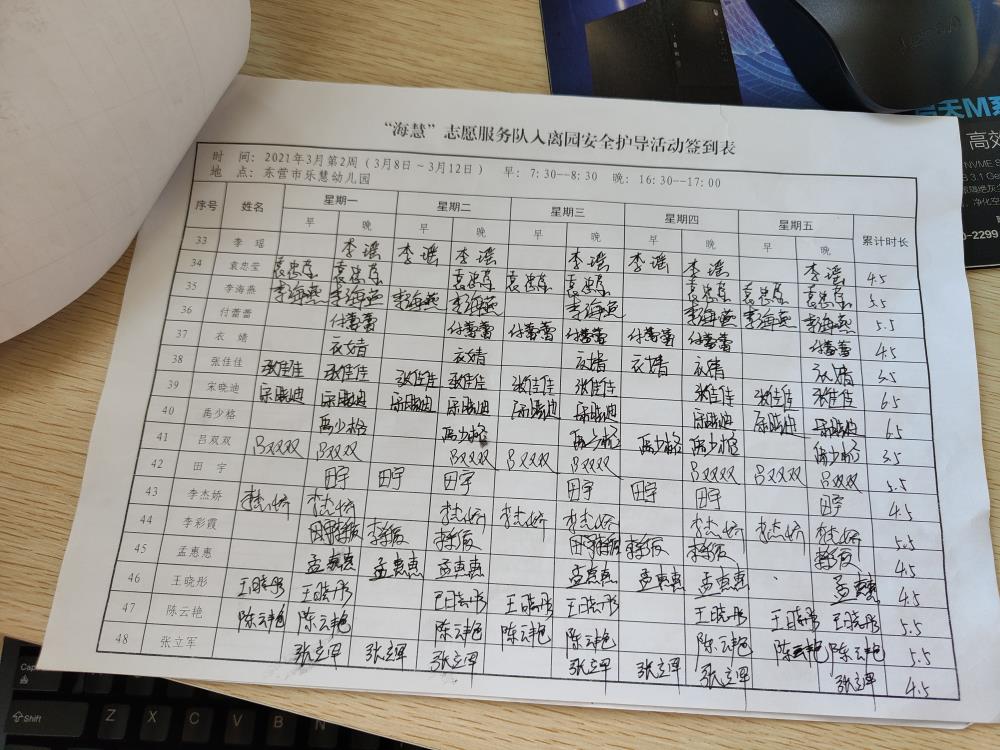 “海慧”志愿服务队入离园安全护导活动签到表
时 间：2021年3月第2周（3月8日～3月12日） 早：7:30--8:30 晚：16:30--17:00
地 点：东营市乐慧幼儿园
序号 姓名 星期一 星期二 星期三 星期四 星期五 累计时长
早 晚 早 晚 早 晚 早 晚 早 晚
33 李 瑶 李瑶 李瑶 李瑶 李瑶 李瑶 李瑶 李瑶 4.5
34 袁忠莹 袁忠莹 袁忠莹 袁忠莹 袁忠莹 袁忠莹 袁忠莹 袁忠莹 袁忠莹 5.5
35 李海燕 李海燕 李海燕 李海燕 李海燕 李海燕 李海燕 李海燕 李海燕 5.5
36 付蕾蕾 付蕾蕾 付蕾蕾 付蕾蕾 付蕾蕾 付蕾蕾 付蕾蕾 付蕾蕾 4.5
37 衣 婧 衣婧 衣婧 衣婧 衣婧 衣婧 衣婧 3.5
38 张佳佳 张佳佳 张佳佳 张佳佳 张佳佳 张佳佳 张佳佳 张佳佳 张佳佳 张佳佳 6.5
39 宋晓迪 宋晓迪 宋晓迪 宋晓迪 宋晓迪 宋晓迪 宋晓迪 宋晓迪 宋晓迪 宋晓迪 6.5
40 禹少格 禹少格 禹少格 禹少格 禹少格 禹少格 禹少格 3.5
41 吕双双 吕双双 吕双双 吕双双 吕双双 吕双双 吕双双 吕双双 吕双双 5.5
42 田 宇 田宇 田宇 田宇 田宇 田宇 田宇 田宇 4.5
43 李杰娇 李杰娇 李杰娇 李杰娇 李杰娇 李杰娇 李杰娇 李杰娇 李杰娇 5.5
44 李彩霞 李彩霞 李彩霞 李彩霞 李彩霞 李彩霞 李彩霞 李彩霞 4.5
45 孟惠惠 孟惠惠 孟惠惠 孟惠惠 孟惠惠 孟惠惠 孟惠惠 孟惠惠 4.5
46 王晓彤 王晓彤 王晓彤 王晓彤 王晓彤 王晓彤 王晓彤 王晓彤 王晓彤 5.5
47 陈云艳 陈云艳 陈云艳 陈云艳 陈云艳 陈云艳 陈云艳 陈云艳 陈云艳 5.5
48 张立军 张立军 张立军 张立军 张立军 张立军 张立军 张立军 4.5
高效
Shift
Z X C V B N